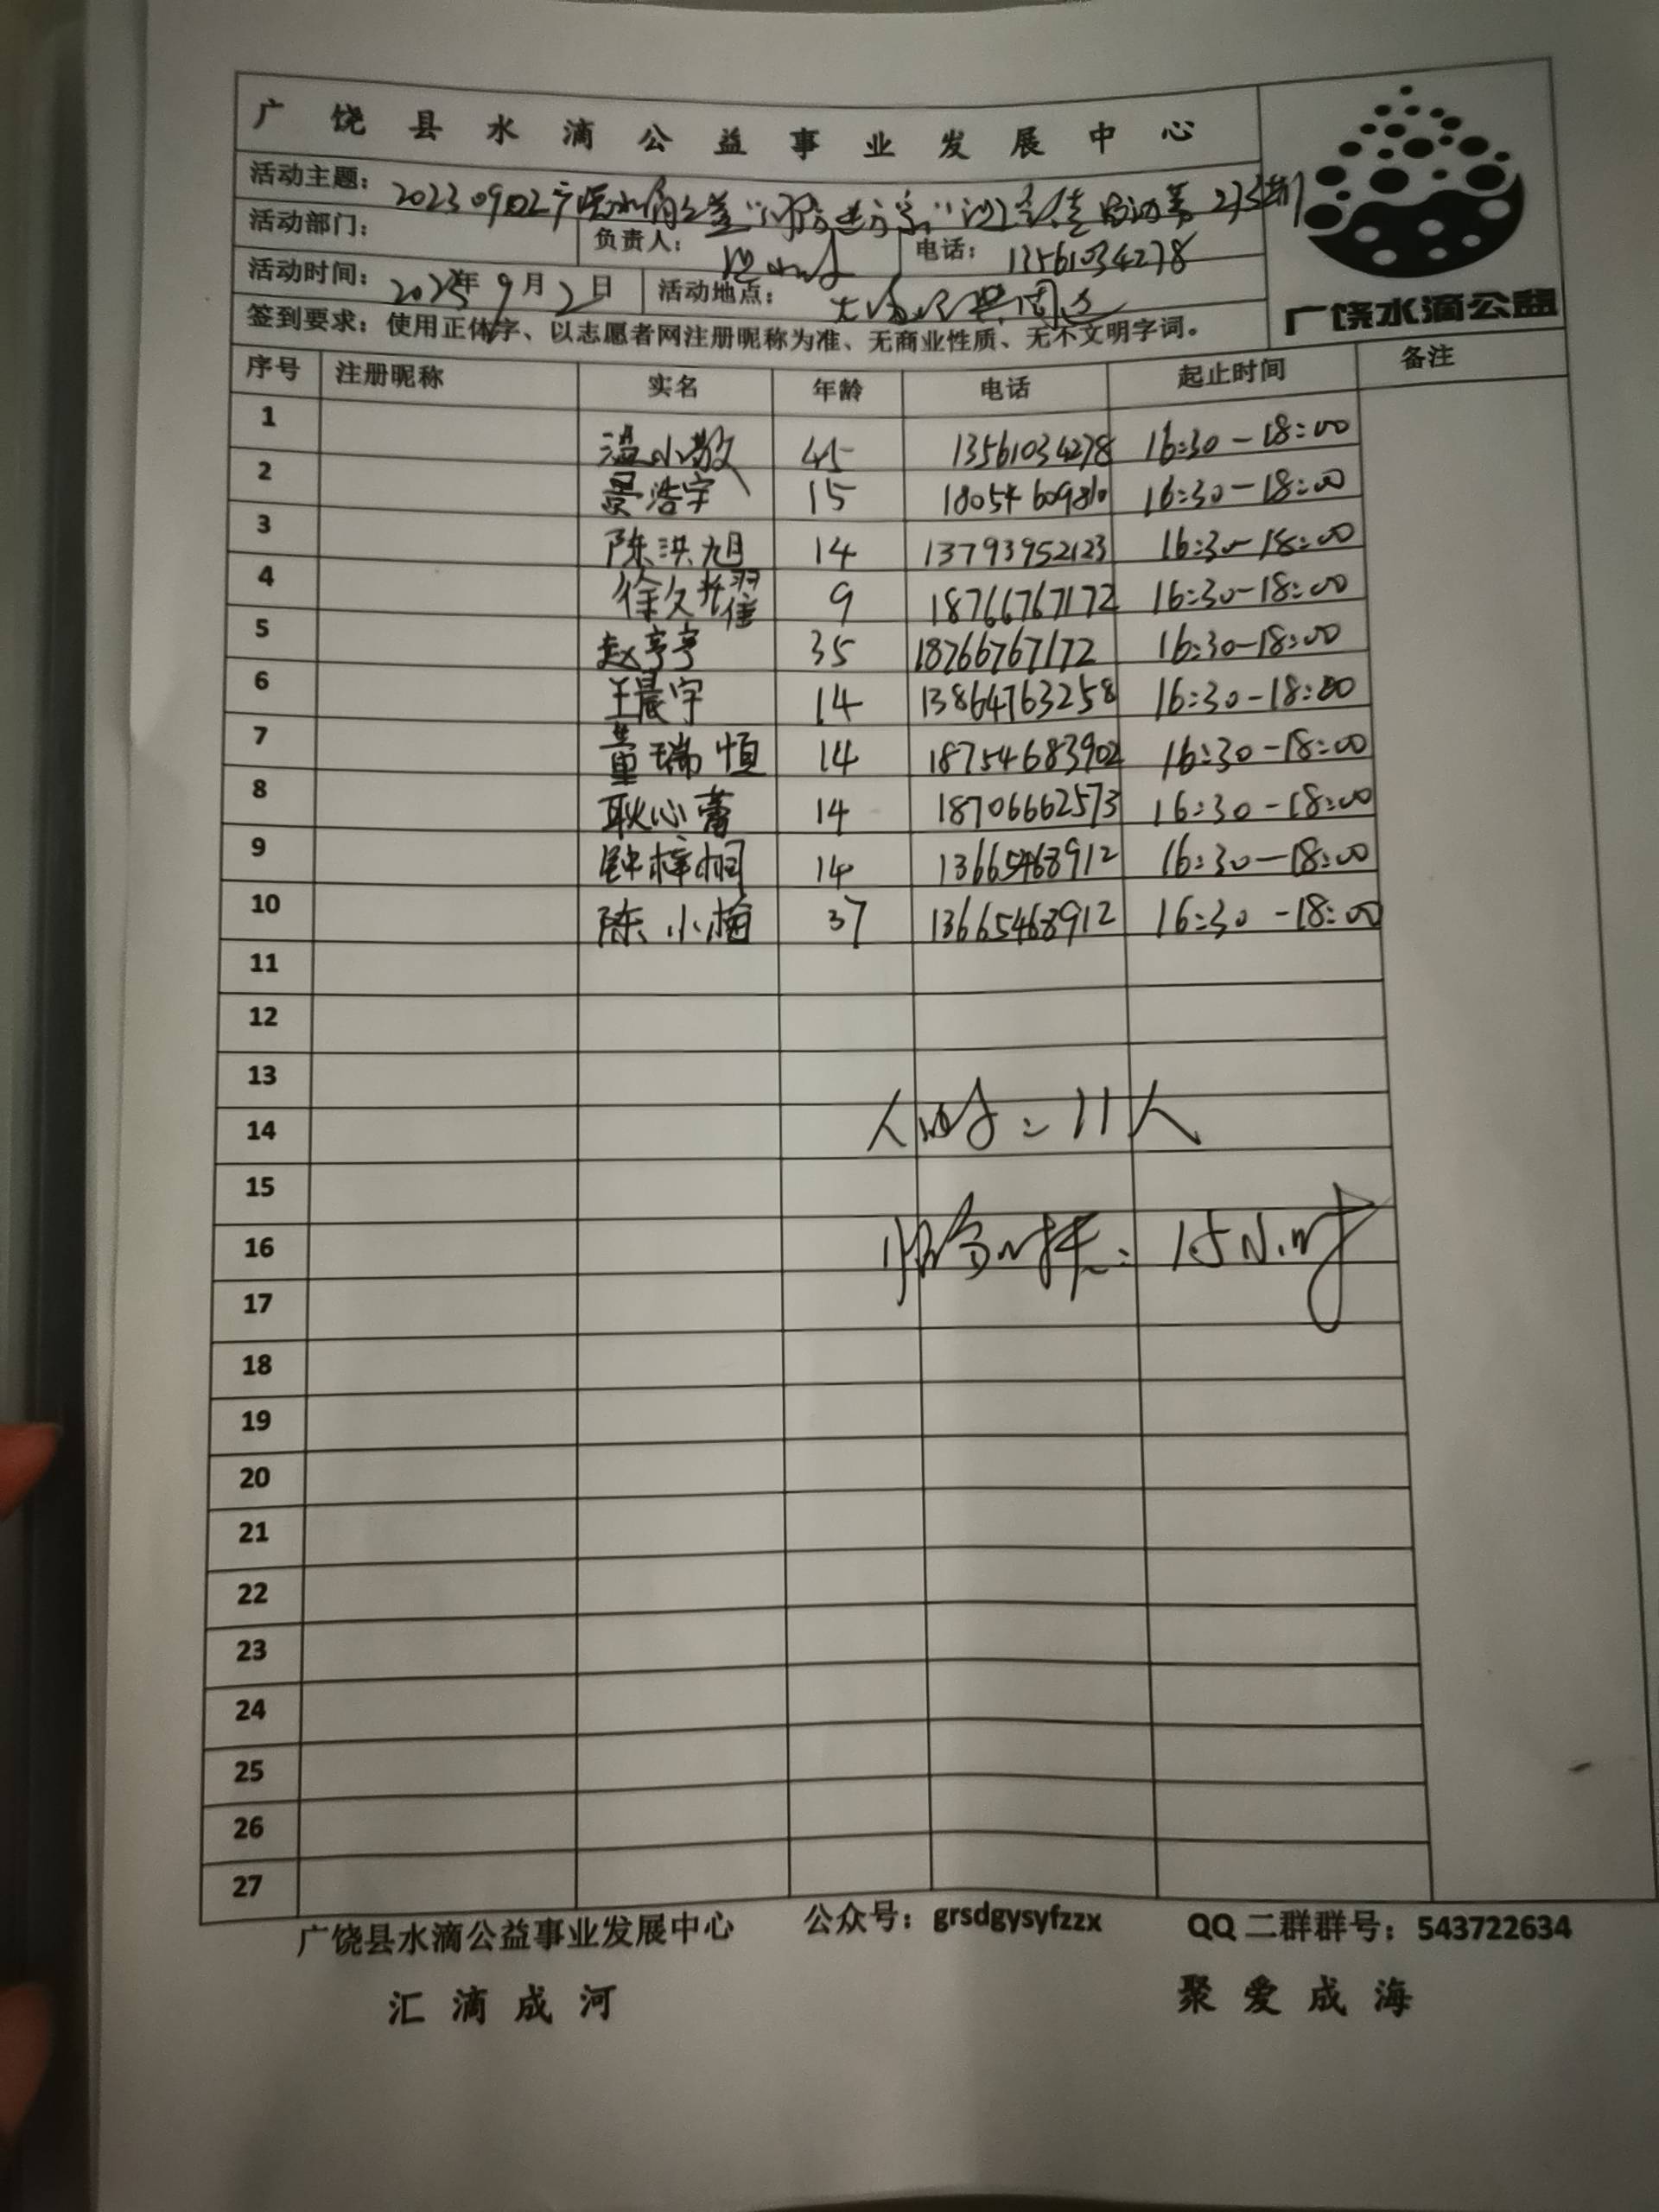 广饶县水滴公益事业发展中心
活动主题： 20230902
活动部门： 负责人： 电话： 13561034278
活动时间： 年9月2日 活动地点：
签到要求：使用正体字、以志愿者网注册昵称为准、无商业性质、无不文明字词。
广饶水滴公益
序号 注册昵称 实名 年龄 电话 起止时间 备注
1 温小敏 45 13561034278 16:30-18:00
2 晏浩宇 15 16:30-18:00
3 陈洪旭 14 13793952123 16:30-18:00
4 徐久 9 18766767172 16:30-18:00
5 赵亭亭 35 18766767172 16:30-18:00
6 王晨宇 14 13864763258 16:30-18:00
7 董瑞恒 14 18754683902 16:30-18:00
8 耿心蕾 14 18706662573 16:30-18:00
9 钟梓桐 14 13665468912 16:30-18:00
10 陈小梅 37 13665468912 16:30-18:00
11
12
13
14 11人
15
16 1.5小时
17
18
19
20
21
22
23
24
25
26
27
广饶县水滴公益事业发展中心 公众号：grsdgysyfzzx QQ二群群号：543722634
汇滴成河 聚爱成海